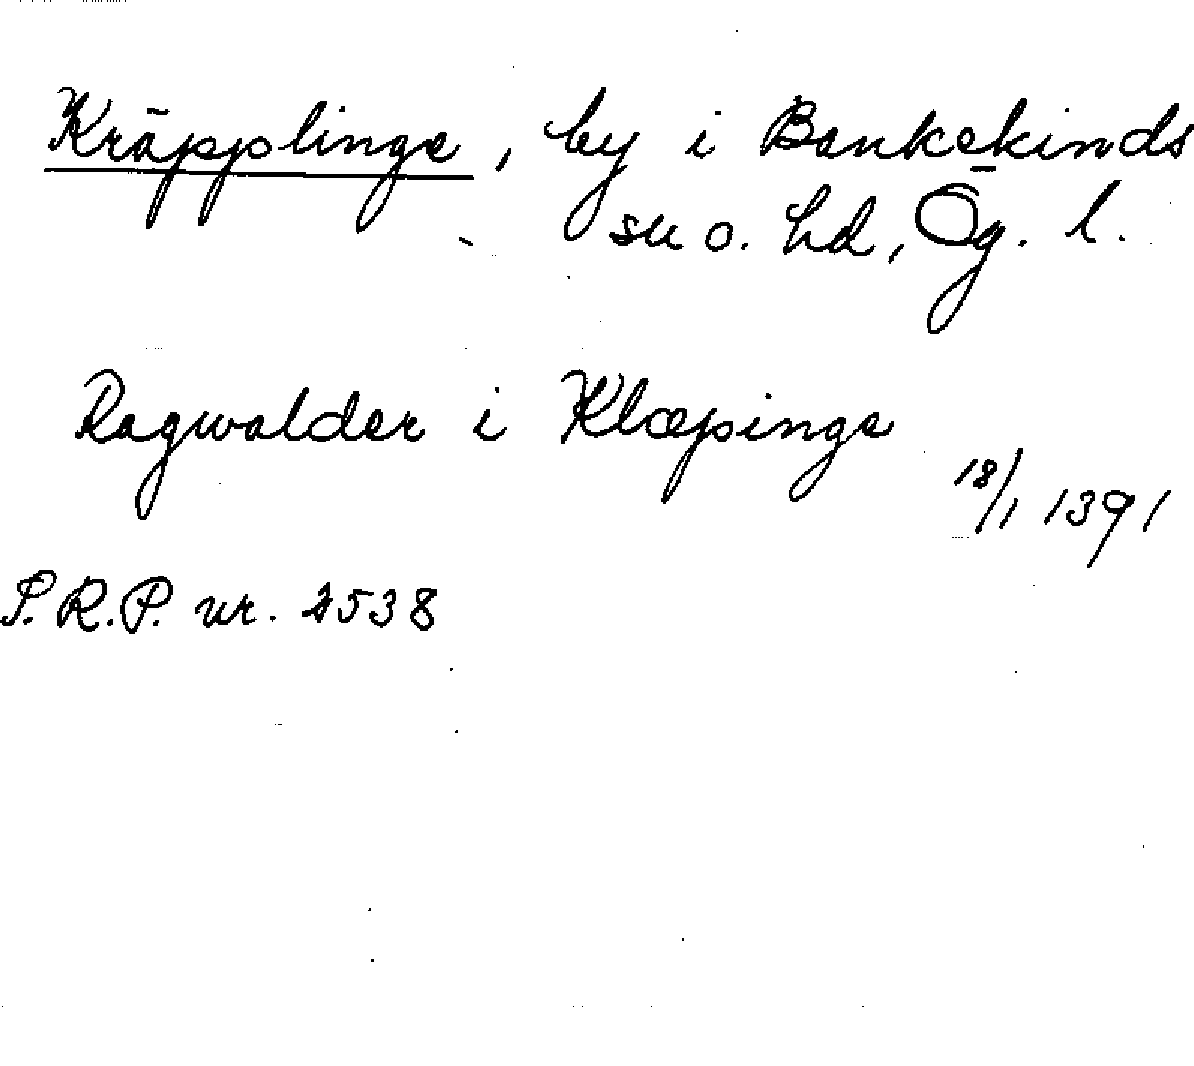 Kräpplinge, by i Bankekinds
sn o. hd, Ög. l.
Ragwalder i Klæpinge
18/1 1391
P.R.P. nr. 2538